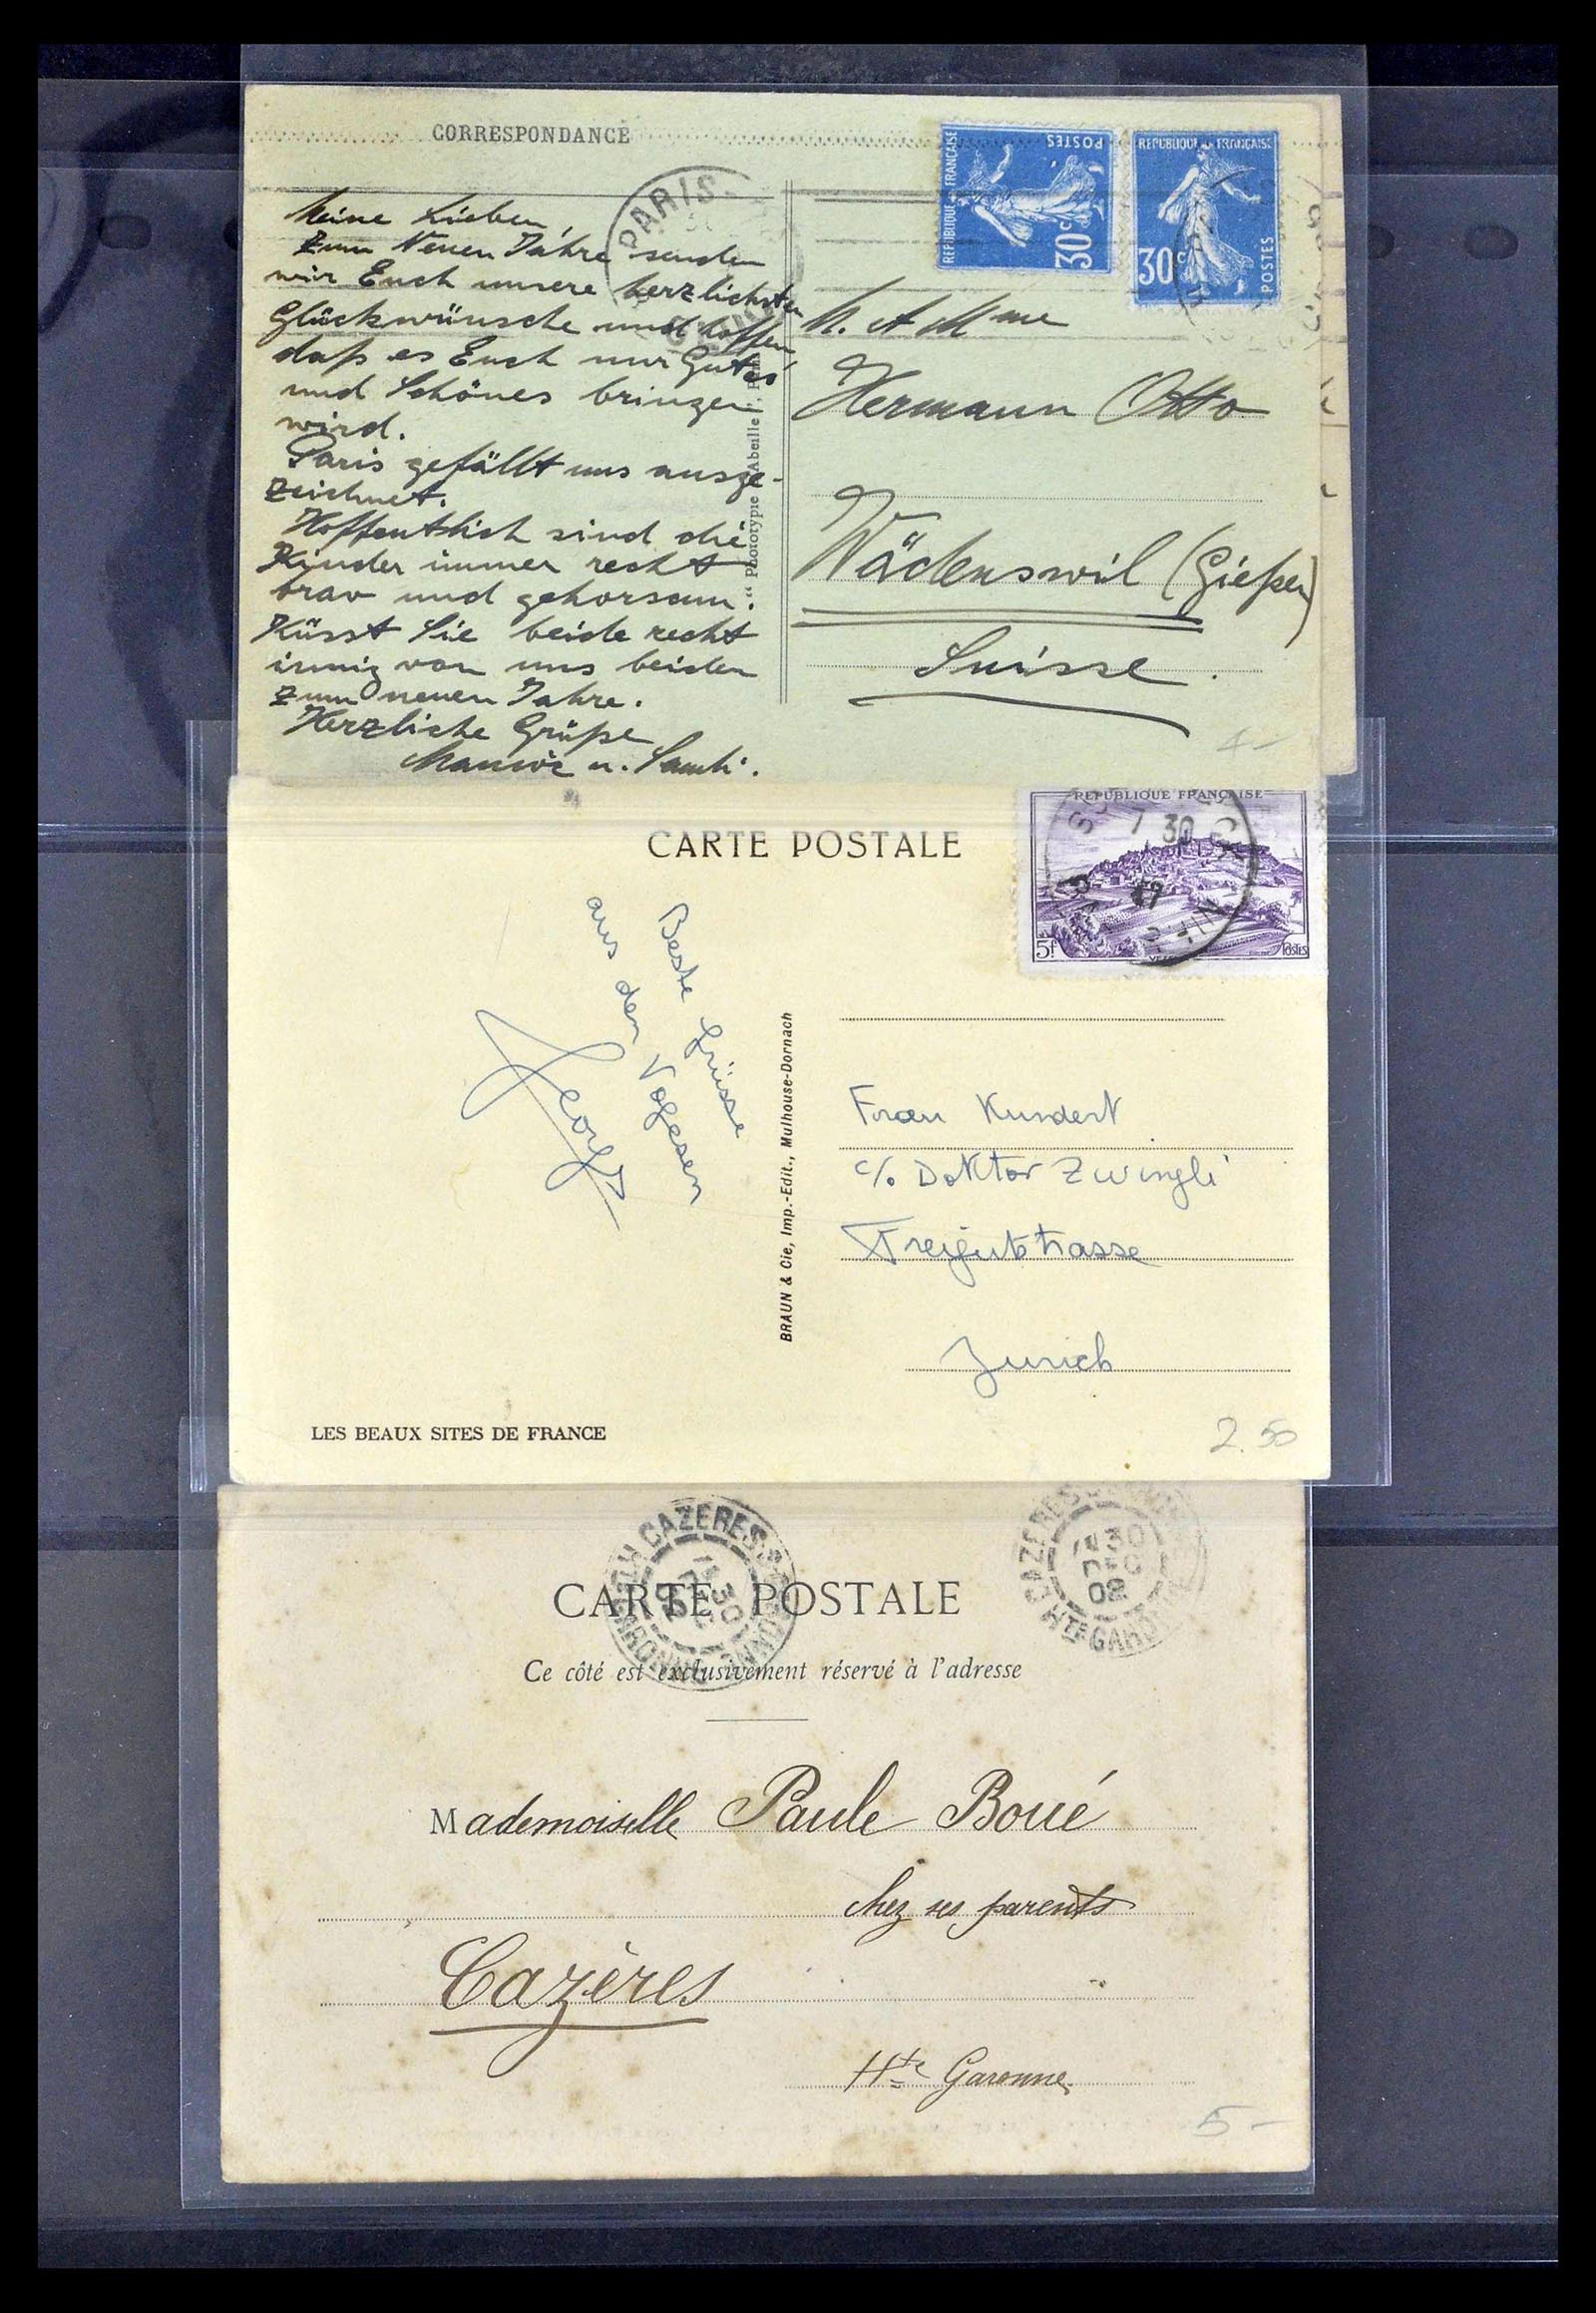 CORRESPONDANCE
PARIS
REPUBLIQUE FRANCAISE
POSTES
30c
REPUBLIQUE FRANCAISE
30c
POSTES
Meine Lieben
Zum Neuen Jahre senden
wir Euch unsere herzlichsten
Glückwünsche und hoffen
daß es Euch nur Gutes
und Schönes bringen
wird.
Paris gefällt uns ausge-
zeichnet.
Hoffentlich sind die
Kinder immer recht
brav und gehorsam.
Küsst Sie beide recht
innig von uns beiden
zum neuen Jahre.
Herzliche Grüße
u.
"Phototypie Abeille"
M. et Mme
Hermann Otto
Wädenswil (Gießen)
Suisse.
4-
CARTE POSTALE
REPUBLIQUE FRANÇAISE
7 30
47
5f
Postes
Beste Grüsse
aus den Vogesen
Georg
BRAUN & Cie, Imp.-Edit., Mulhouse-Dornach
Frau Kundert
c/o Doktor Zwingli
Freigutstrasse
Zurich
LES BEAUX SITES DE FRANCE
2.50
CAZERES
30
CAZERES
30
DEC
02
HTE GARONNE
CARTE POSTALE
Ce côté est exclusivement réservé à l'adresse
Mademoiselle Paule Boué
chez ses parents
Cazères
Hte Garonne
5-